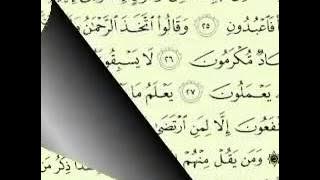 فَٱعْبُدُونِ ٢٥ وَقَالُوا۟ ٱتَّخَذَ ٱلرَّحْمَٰنُ
ـادٌ مُّكْرَمُونَ ٢٦ لَا يَسْبِقُو
يَعْمَلُونَ ٢٧ يَعْلَمُ مَا
ـفَعُونَ إِلَّا لِمَنِ ٱرْتَضَىٰ
وَمَن يَقُلْ مِنْهُمْ
ذِكْرُ مَن